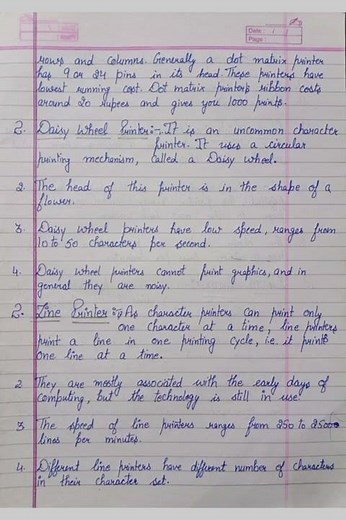 Date / /
Page
rows and columns. Generally a dot matrix printer
has 9 or 24 pins in its head. These printers have
lowest running cost. Dot matrix printer's ribbon costs
around 20 rupees and gives you 1000 prints.
2. Daisy Wheel Printer :-. It is an uncommon character
printer. It uses a circular
printing mechanism, called a Daisy wheel.
2. The head of this printer is in the shape of a
flower.
3. Daisy wheel printers have low speed, ranges from
10 to 50 characters per second.
4. Daisy wheel printers cannot print graphics, and in
general they are noisy.
2. Line Printer :-1) As character printers can print only
one character at a time, line printers
print a line in one printing cycle, i.e. it prints
one line at a time.
2 They are mostly associated with the early days of
computing, but the technology is still in use.
3 The speed of line printers ranges from 250 to 25000
lines per minutes.
4. Different line printers have different number of characters
in their character set.